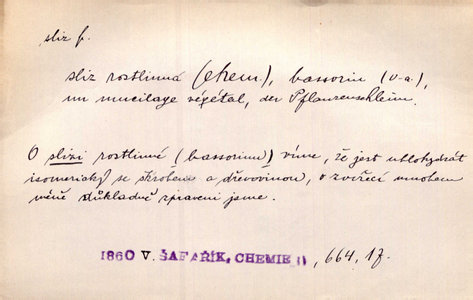 sliz f.
sliz rostlinná (chem.), bassorin (v-a.),
un mucilage végétal, der Pflanzenschleim.
O slizi rostlinné (bassorinu) víme, že jest uhlohydrát
isomerický se škrobem a dřevovinou, o zvířecí mnohem
méně důkladně zpraveni jsme.
1860 V. ŠAFAŘÍK, CHEMIE II, 664, 17.